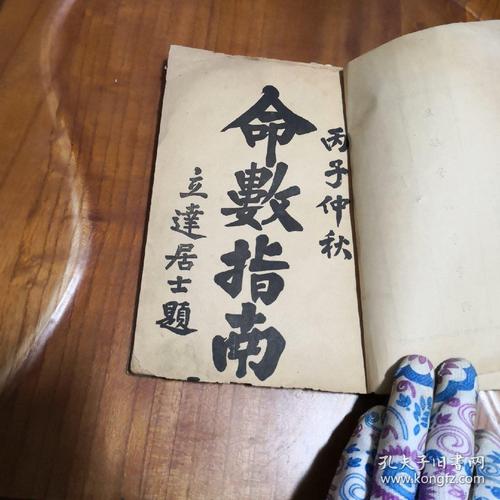 丙子仲秋
命數指南
立達居士題
孔夫子旧书网
www.kongfz.com